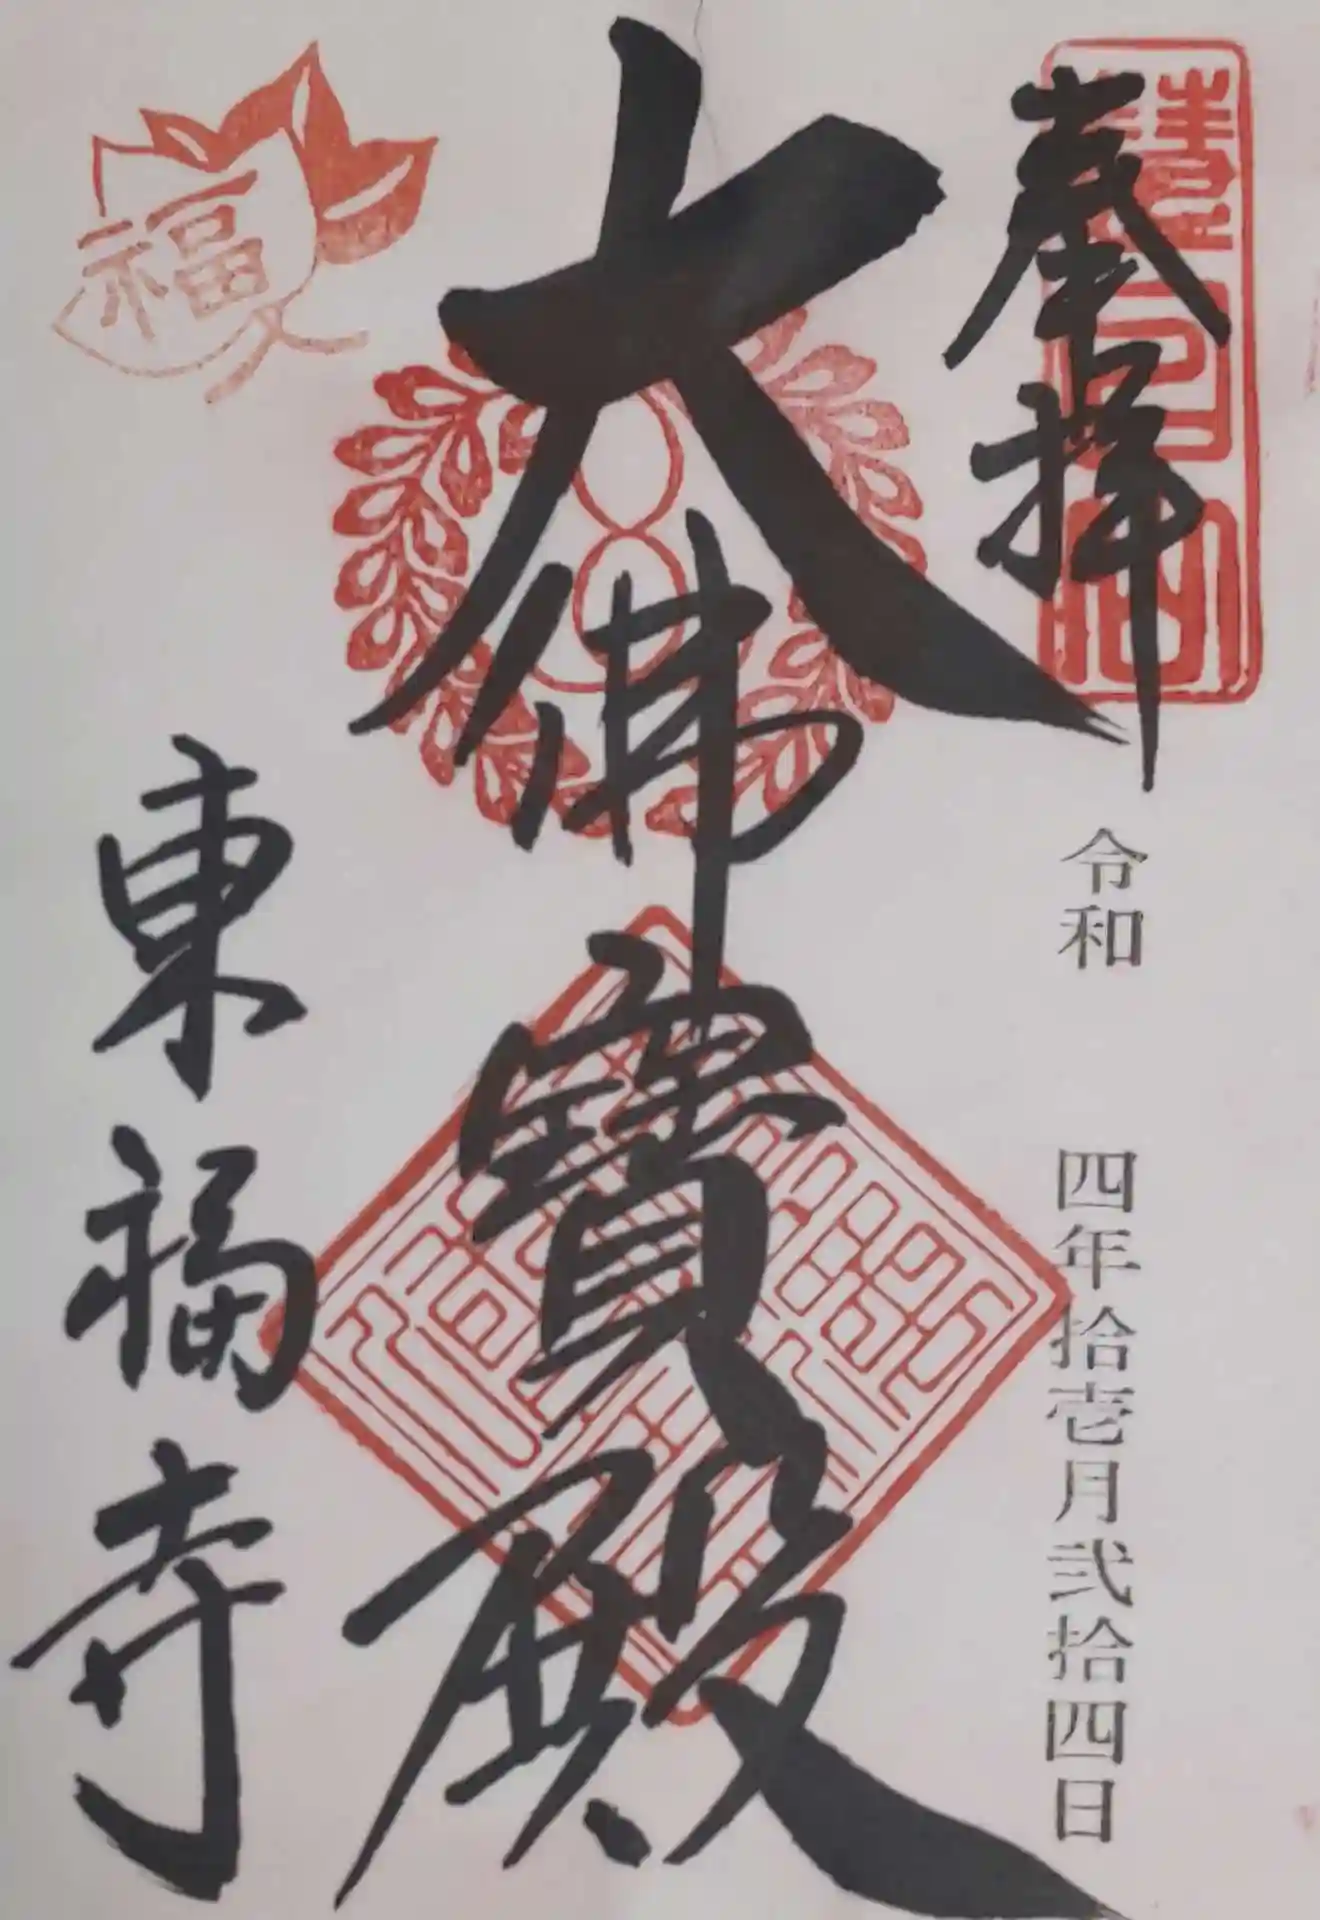 奉拝
令和 四年拾壱月弐拾四日
大佛寳殿
東福寺
福
慧日山